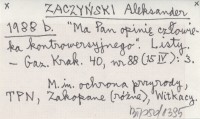 ZACZYŃSKI Aleksander.
1988 b. "Ma Pan opinię człowie-
ka kontrowersyjnego". Listy.
- Gaz. Krak. 40, nr 88 (15 IV): 3.
M.in. ochrona przyrody,
TPN, Zakopane (różne), Witkacy.